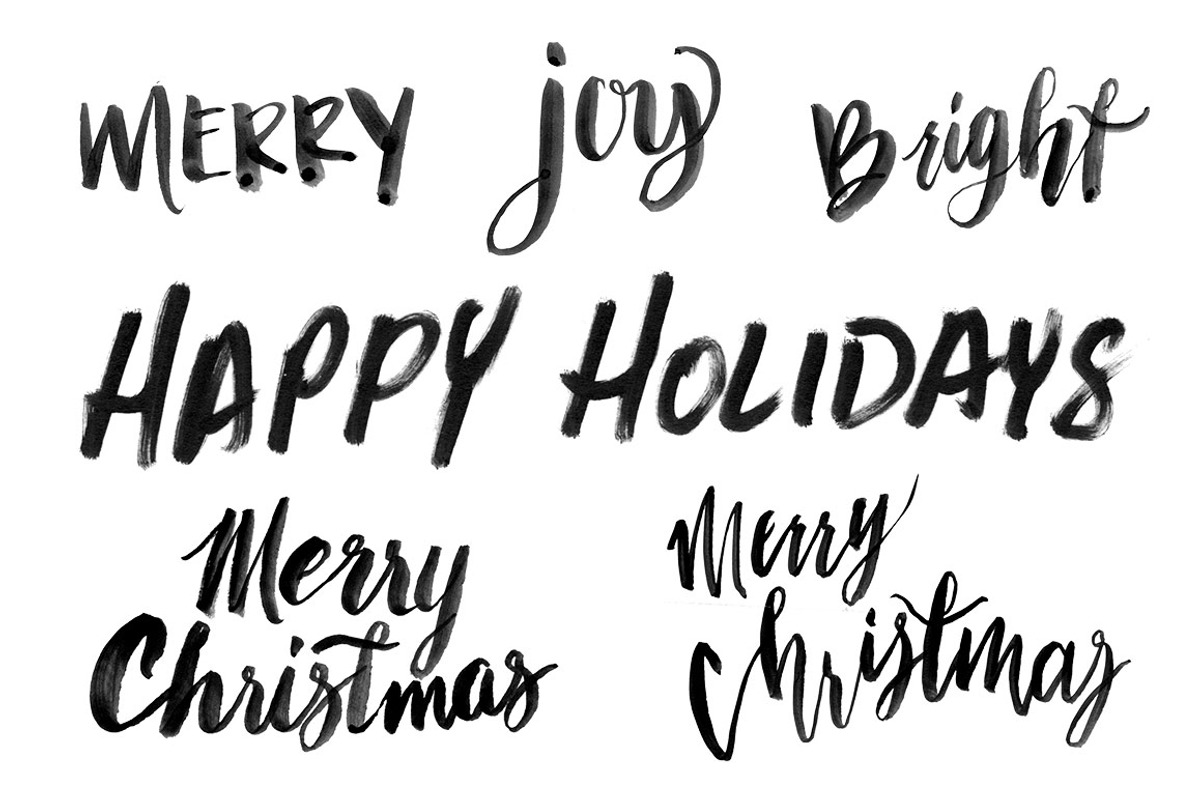 MERRY joy Bright
HAPPY HOLIDAYS
Merry
Christmas
Merry
Christmas